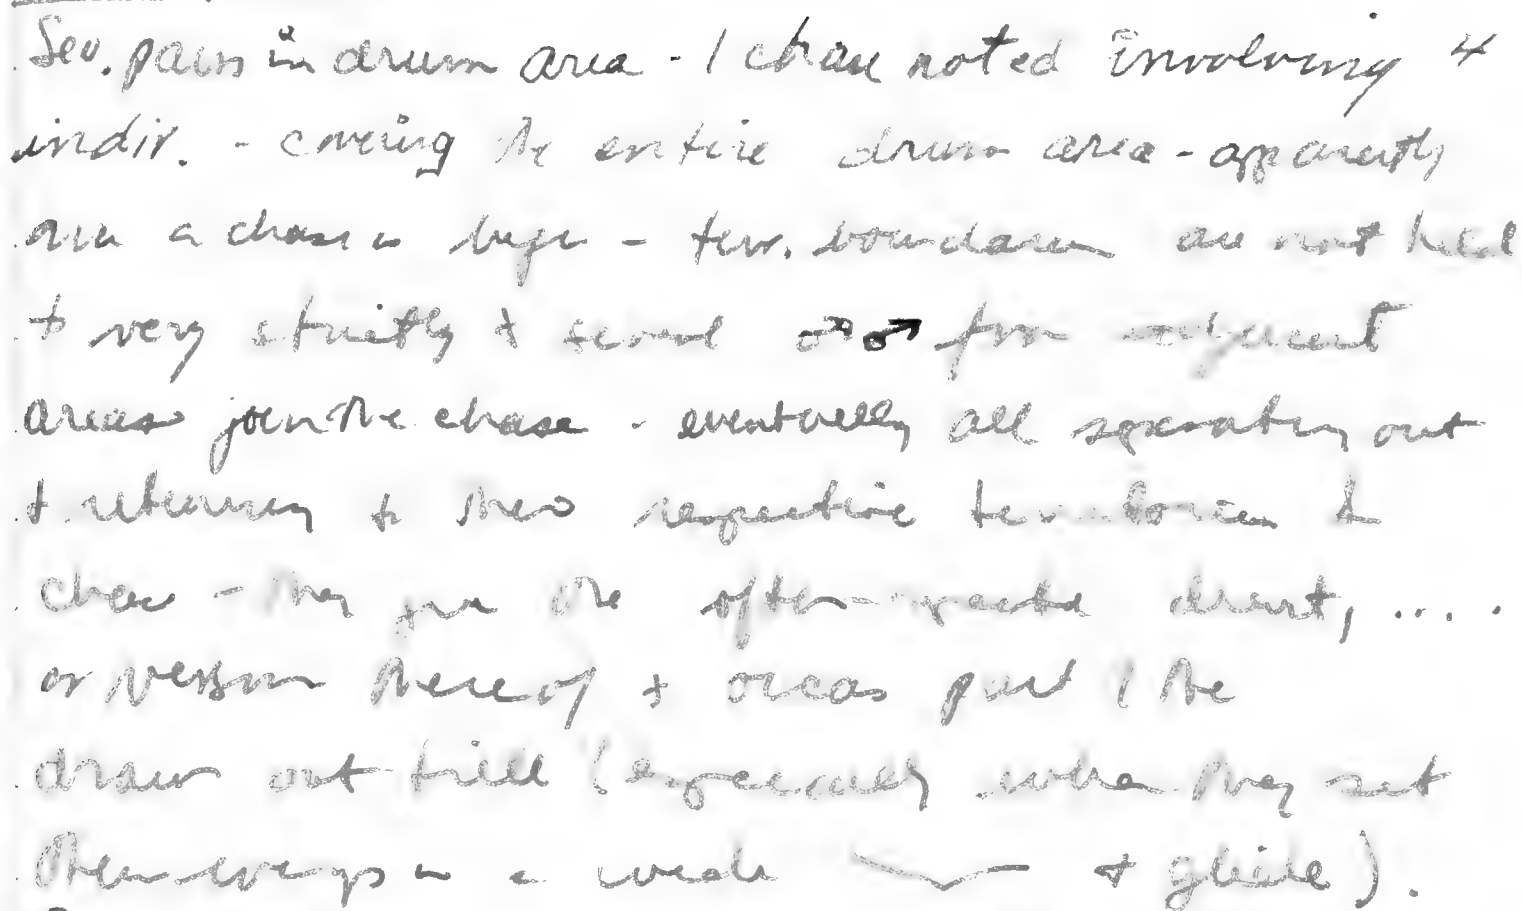 Sev. pairs in drum area - 1 chase noted involving 4
indiv. - covering the entire drum area - apparently
once a chase is begun - terr. boundaries are not held
to very strictly & several ♂♂ from adjacent
areas join the chase - eventually all separating out
& returning to their respective territories &
chase - they give the often-repeated dreert, ....
or version thereof & occas part of the
drawn out trill (especially when they set
their wings in a wide & glide).